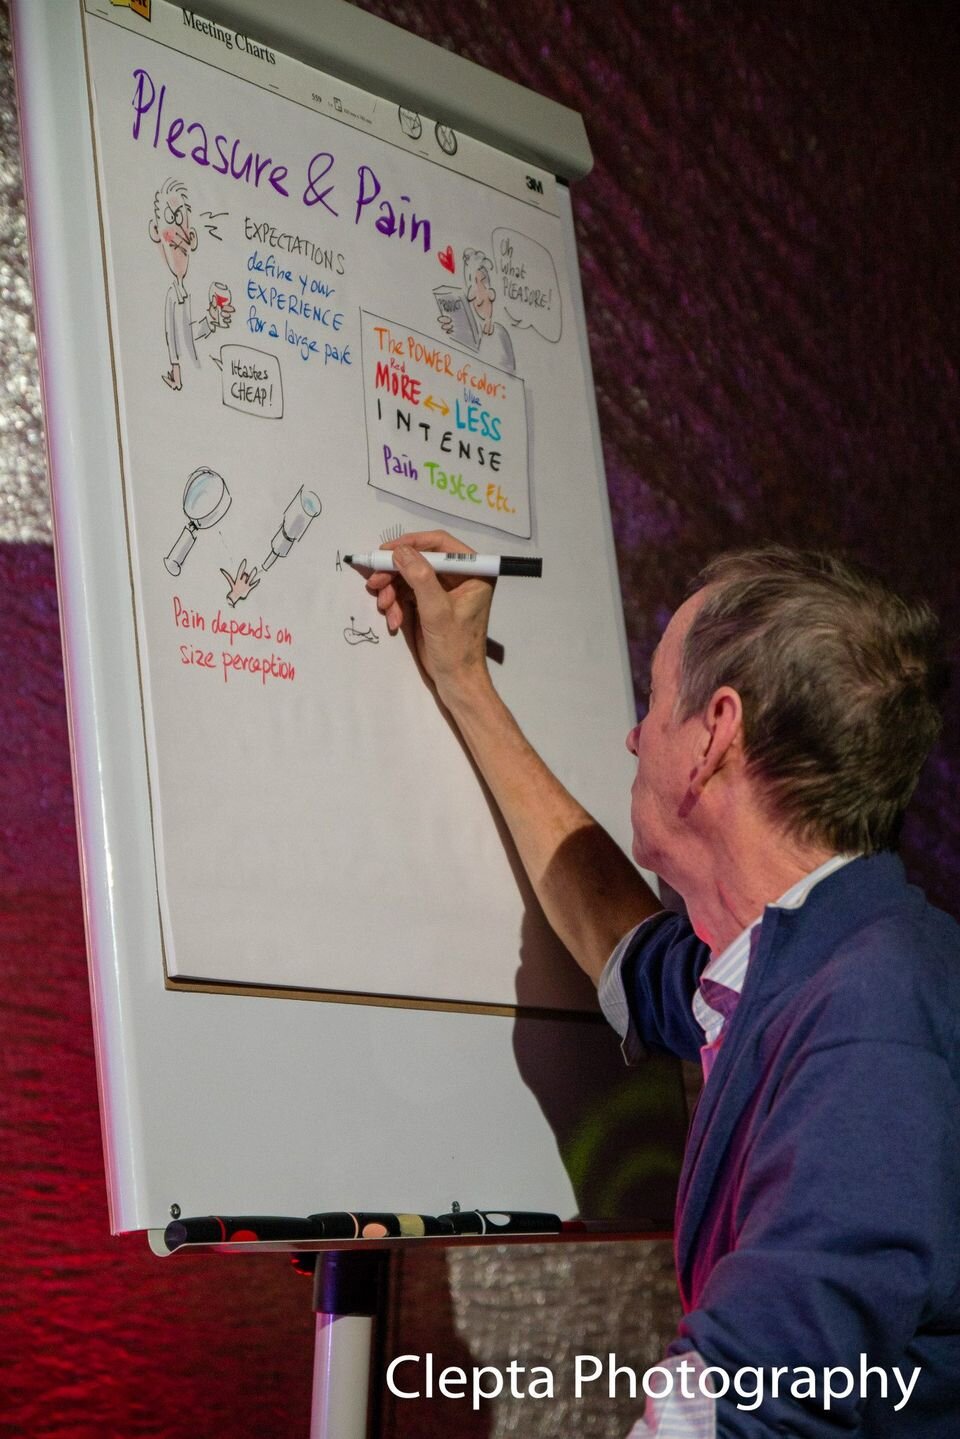 Meeting Charts
559
3M
Pleasure & Pain
EXPECTATIONS
define your
EXPERIENCE
for a large part
It tastes
CHEAP!
Oh
what
PLEASURE!
PRODUCT
The POWER of color:
Red
blue
MORE ↔ LESS
INTENSE
Pain Taste Etc.
A
Pain depends on
size perception
Clepta Photography